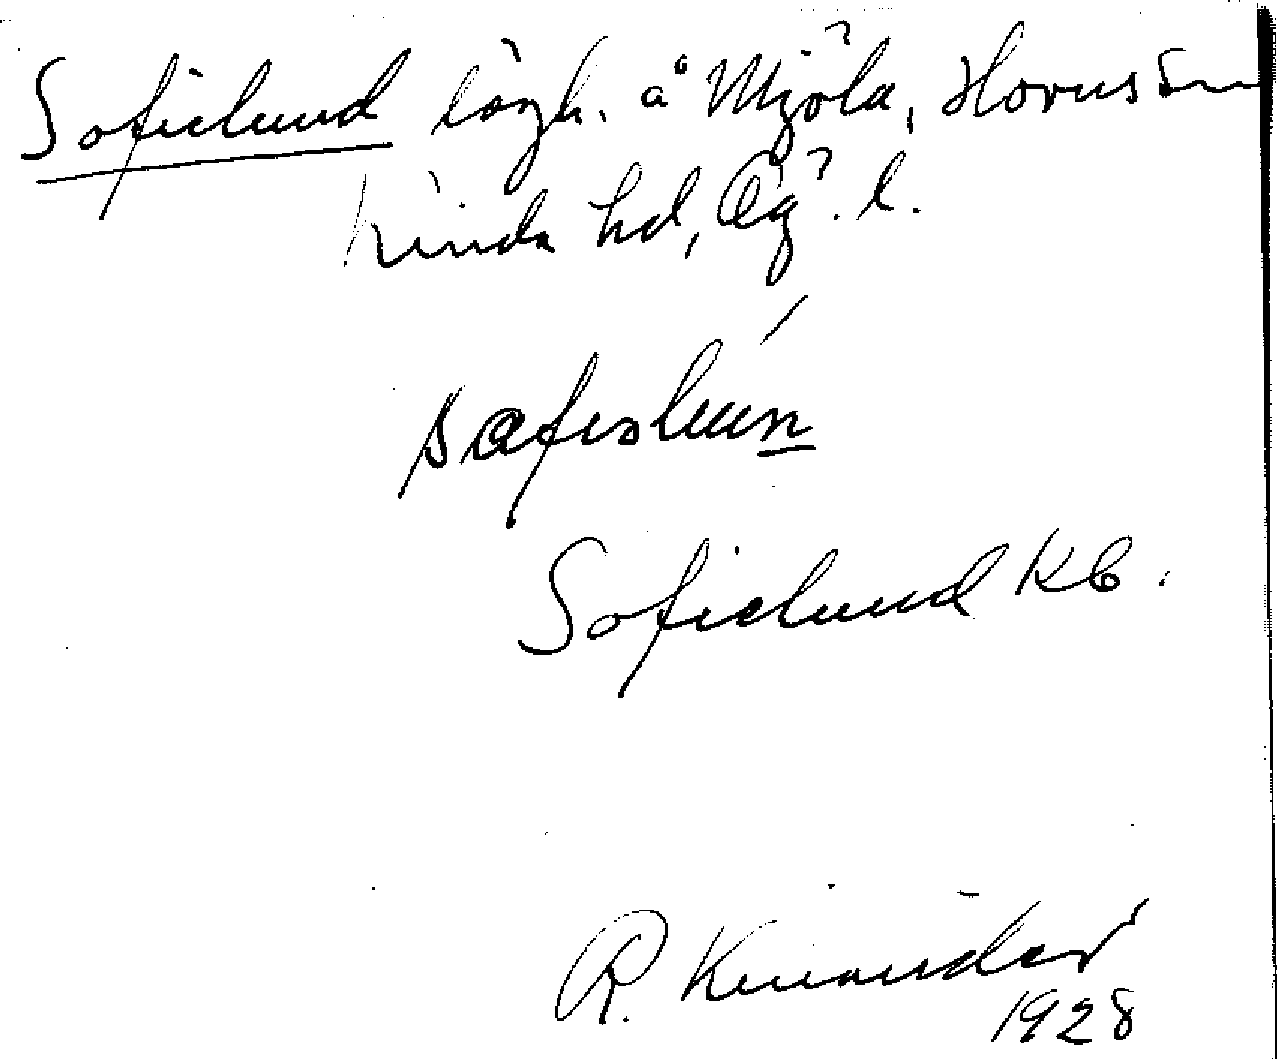 Sofielund lägh. å Mjöla, Horns sn
Kinda hd, Ög. l.
sofislun
Sofielund Kb.
R. Kinander
1928